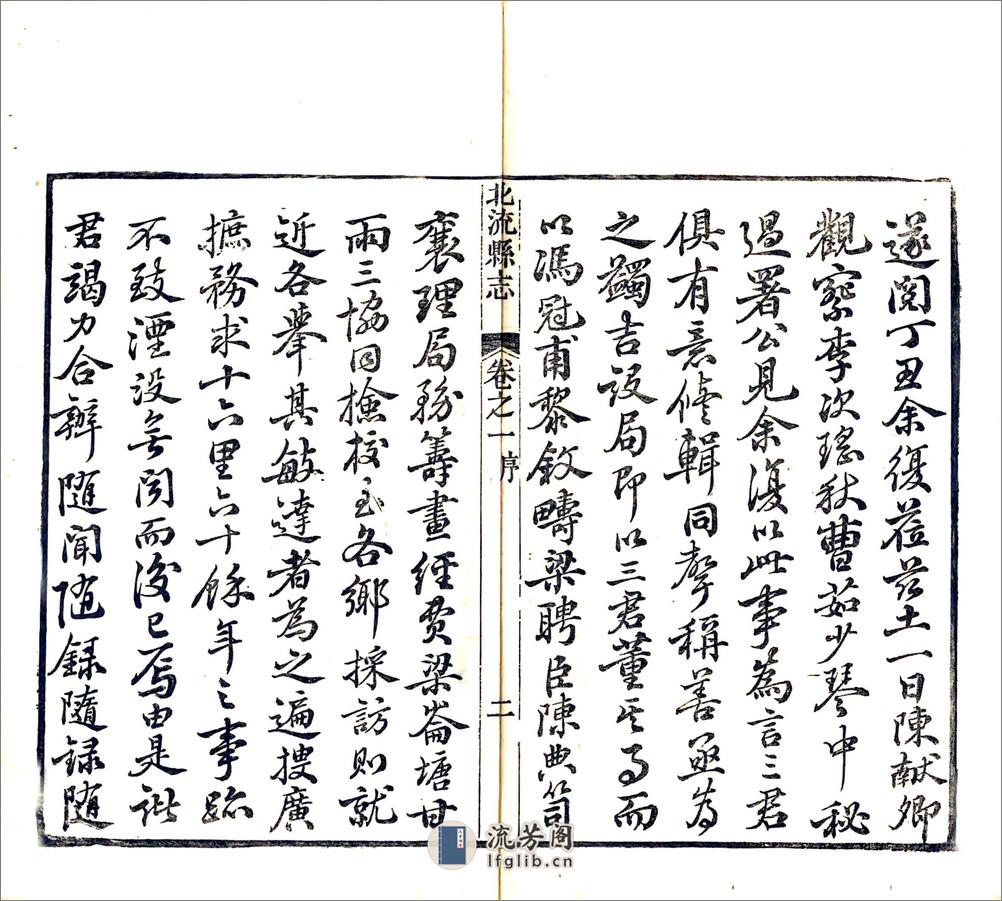 遂閣丁丑余復蒞茲土一日陳猷卿
觀察李次瑤秋曹茹少琴中秘
過署公見余復以此事為言三君
俱有意修輯同聲稱善亟為
之蠲吉設局即以三君董其事而
以馮冠甫黎敘疇梁聘臣陳典笥
北流縣志
卷之一
序
二
襄理局務籌畫經費梁崙塘甘
雨三協同撿校至各鄉採訪則就
近各舉其敏達者為之遍搜廣
摭務求十六里六十餘年之事跡
不致湮沒無聞而後已焉由是諸
君竭力合辦隨聞隨錄隨錄隨
流芳阁
lfglib.cn